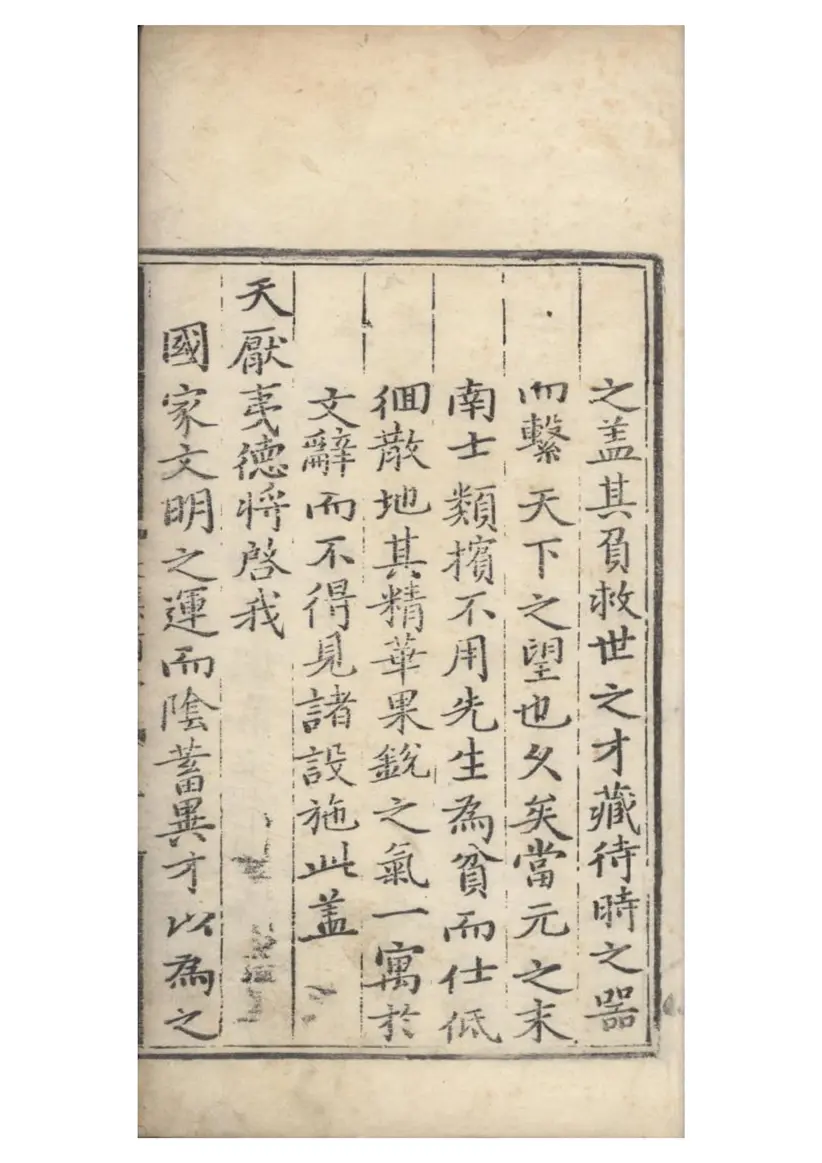 之盖其負救世之才藏待時之器
而繫天下之望也久矣當元之末
南士類擯不用先生為貧而仕低
徊散地其精華果銳之氣一寓於
文辭而不得見諸設施此盖
天厭夷德將啓我
國家文明之運而陰蓄異才以為之